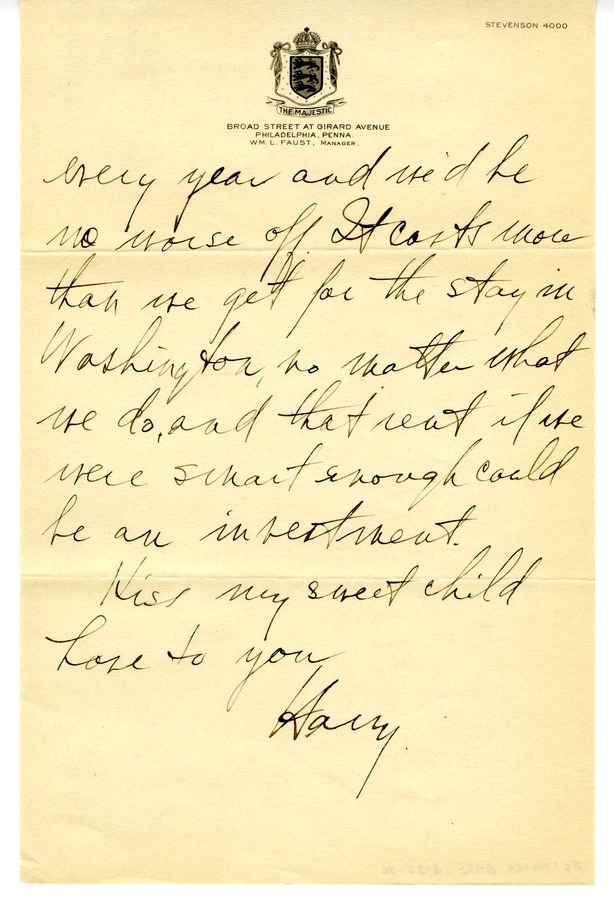 STEVENSON 4000
THE MAJESTIC
BROAD STREET AT GIRARD AVENUE
PHILADELPHIA, PENNA.
WM. L. FAUST, MANAGER.
every year and we'd be
no worse off It costs more
than we get for the stay in
Washington, no matter what
we do, and that rent if we
were smart enough could
be an investment.
Kiss my sweet child
Love to you
Harry.